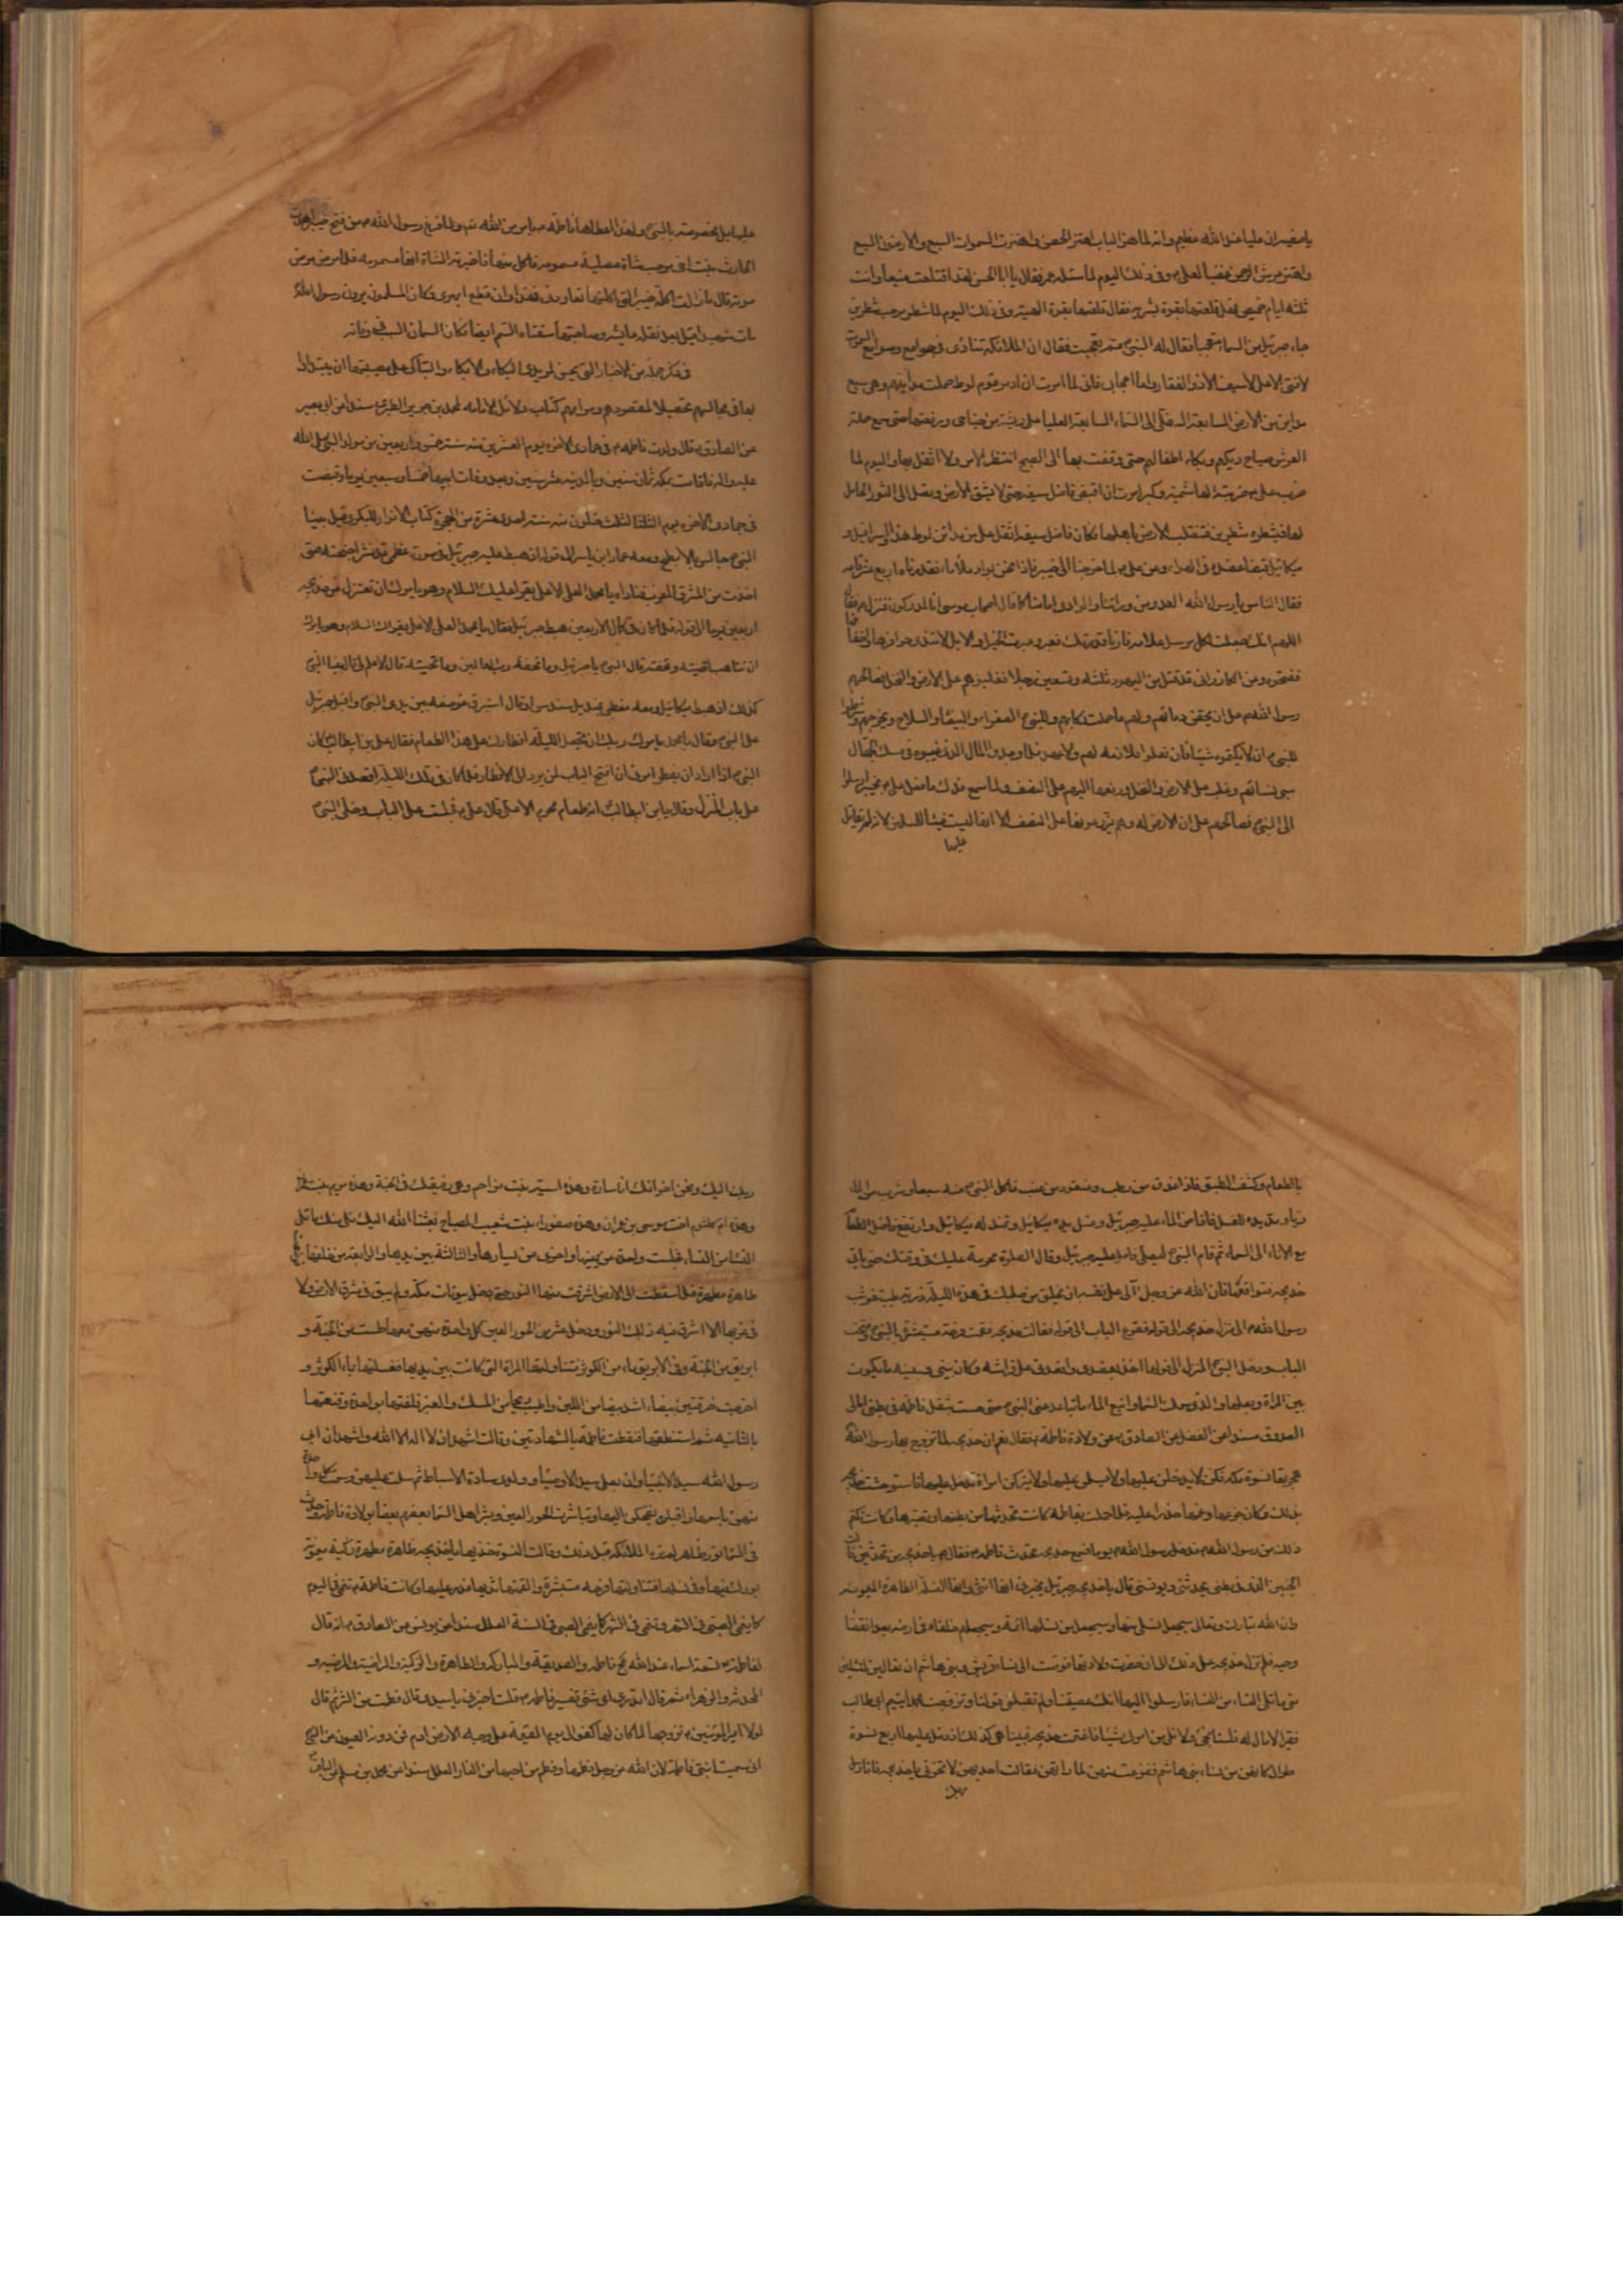 يا صفيه ان عليا عند الله عظيم وانه لما هز الباب اهتز الحصن واهتزت السموات السبع والارضون السبع
واهتز عرش الرحمن غضبا لعلى وفى ذلك اليوم لما سئله عمر فقال يا ابا الحسن لقد اقتلعت منيعا وانت
ثلثه ايام خميص فهل قلعتها بقوة بشريه فقال قلعتها بقوة الهيه وفى ذلك اليوم لما شطر مرحب شطرين
جاء جبرئيل من السماء متعجبا فقال له النبى مم تعجبت فقال ان الملائكه تنادى فى جوامع وصوامع السموات
لا فتى الا على لا سيف الا ذو الفقار واما اعجابى فانى لما امرت ان ادمر قوم لوط حملت مداينهم وهى سبع
مداين من الارض السابعة السفلى الى السماء السابعة العليا على ريشة من جناحى ورفعتها حتى سمع حملة
العرش صياح ديكهم وبكاء اطفالهم حتى وقفت بها الى الصبح انتظر الامر ولا اثقل بها واليوم لما
ضرب على ضربته الهاشمية وكبر امرت ان اقبض فاضل سيفه حتى لا يشق الارض ويصل الى الثور الحامل
لها فيشطره شطرين فتنقلب الارض باهلها فكان فاضل سيفه اثقل على من مداين لوط هذا واسرافيل و
ميكائيل قبضا عضده فى الهواء وعن على لما خرجنا الى خيبر فاذا نحن بواد ملاء ماء فقدرناه اربع عشر قامه
فقال الناس يا رسول الله العدو من ورائنا والوادى امامنا كما قال اصحاب موسى انا لمدركون فنزل فقال
اللهم انك جعلت لكل مرسل علامه فارنا قدرتك فعبر وعبرت الخيل والابل لا تندى حوافرها واخفافها
ففتحوه وعن الكازرانى قد قتل من اليهود ثلثه وتسعين رجلا فغلبوهم على الارض والنخل فصالحهم
رسول الله على ان يحقن دماءهم ولهم ما حملت ركابهم وللنبى الصفراء والبيضاء والسلاح ويخرجهم وشرطوا
للنبى ان لا يكتموه شيئا فان فعلوا فلا ذمه لهم ولا عهد فلما وجدوا المال الذى غيبوه فى مسك الجمال
سبى نسائهم وغلب على الارض والنخل ودفعها اليهم على النصف ولما سمع فدك ما فعل على بخيبر ارسلوا
الى النبى فصالحهم على ان الارض له وهم يزرعونها على النصف الا انها ليست فيئا للمسلمين لانه لم يقاتل
عليها
عليها بل مخصوصة بالنبى ولهذا اعطاها فاطمه بامر من الله تع ولما فرغ رسول الله من فتح خيبر اهدت
الحارث بنت اخى مرحب شاة مصلية مسمومه فاكل منها فاخبرته الشاة انها مسمومه فلما مرض مرض
موته قال ما زالت اكلة خيبر التى اكلتها تعاودنى فهذا اوان قطع ابهرى وكان المسلمون يرون رسول الله
مات شهيدا قيل بعد نقله عايشه وصاحبتها سقتاه السم ايضا فكان السمان السبب فى وفاته
فى ذكر جملة من الاخبار التى يحسن لمريدى البكاء والابكاء والتباكى على مصيبتها ان يبتداوا
بها فى مجالسهم تحصيلا لمقصودهم ومرامهم كتاب دلائل الامامه لمحمد بن جرير الطبرى مسندا عن ابى بصير
عن الصادق قال ولدت فاطمه فى جمادى الاخره يوم العشرين منه سنة خمس واربعين من مولد النبى صلى الله
عليه واله فاقامت بمكه ثمان سنين وبالمدينه عشر سنين وبعد وفات ابيها خمسا وسبعين يوما وقبضت
فى جمادى الاخره يوم الثلثا لثلث خلون منه سنة احدى عشرة من الهجرة كتاب الانوار للبكرى قيل بينا
النبى جالس بالابطح ومعه عمار ابن ياسر الى قوله اذ هبط عليه جبرئيل فى صورته العظمى قد نشر اجنحته حتى
اخذت من المشرق الى المغرب فناداه يا محمد العلى الاعلى يقرا عليك السلام وهو يامرك ان تعتزل عن خديجه
اربعين يوما الى قوله فلما كان فى كمال الاربعين هبط جبرئيل فقال يا محمد العلى الاعلى يقراك السلام وهو يامرك
ان تتاهب لتحيته وتحفته قال النبى يا جبرئيل وما تحفة رب العالمين وما تحيته قال لا علم لى قال فبينا النبى
كذلك اذ هبط ميكائيل ومعه طبق مغطى بمنديل سندس او قال استبرق فوضعه بين يدى النبى واقبل جبرئيل
على النبى وقال يا محمد يامرك ربك ان تجعل الليلة افطارك على هذا الطعام فقال على بن ابيطالب كان
النبى اذا اراد ان يفطر امرنى ان افتح الباب لمن يرد الى الافطار فلما كان فى تلك الليلة اقعدنى النبى
على باب المنزل وقال يا بن ابيطالب انه طعام محرم الا على قال على فجلست على الباب وخلى النبى
بالطعام وكشف الطبق فاذا عذق من رطب وعنقود من عنب فاكل النبى منه شبعا وشرب من الماء
ريا ومد يده للغسل فافاض الماء عليه جبرئيل وغسل يده ميكائيل وتمندله ميكائيل وارتفع فاضل الطعام
مع الاناء الى السماء ثم قام النبى ليصلى فاقبل عليه جبرئيل وقال الصلوة محرمة عليك فى وقتك حتى تاتى
خديجه فتواقعها فان الله عز وجل آلى على نفسه ان يخلق من صلبك فى هذه الليلة ذرية طيبة فوثب
رسول الله الى منزل خديجه الى قوله فقرع الباب الى قوله فقالت خديجه فقمت فرحة مستبشرة بالنبى وفتحت
الباب ودخل النبى المنزل الى قولها اخذ بعضدى واقعدنى على فراشه وكان بينى وبينه ما يكون
بين المراة وبعلها والذى سمك السماء وانبع الماء ما تباعد عنى النبى حتى حسست بثقل فاطمه فى بطنى امالى
الصدوق مسندا عن الفضل عن الصادق عن ولادة فاطمة فقال نعم ان خديجه لما تزوج بها رسول الله
هجرتها نسوة مكه فكن لا يدخلن عليها ولا يسلمن عليها ولا يتركن امراة تدخل عليها فاستوحشت خديجه
بذلك وكان جزعها وغمها حذرا عليه فلما حملت بفاطمه كانت تحدثها من بطنها وتصبرها وكانت تكتم
ذلك من رسول الله فدخل رسول الله يوما فسمع خديجه تحدث فاطمه فقال لها يا خديجه من تحدثين قالت
الجنين الذى فى بطنى يحدثنى ويونسنى قال يا خديجه جبرئيل يخبرنى انها انثى وانها النسلة الطاهرة الميمونه
وان الله تبارك وتعالى سيجعل نسلى منها وسيجعل من نسلها ائمة ويجعلهم خلفاء فى ارضه بعد انقضاء
وحيه فلم تزل خديجه على ذلك الى ان حضرت ولادتها فوجهت الى نساء قريش وبنى هاشم ان تعالين لتلين
منى ما تلى النساء من النساء فارسلوا اليها انك عصيتنا ولم تقبلى قولنا وتزوجت محمدا يتيم ابى طالب
فقيرا لا مال له فلسنا نجئ ولا نلى من امرك شيئا فاغتمت خديجه فبينا هى كذلك اذ دخل عليها اربع نسوة
طوال كانهن من نساء بنى هاشم ففزعت منهن لما راتهن فقالت احديهن لا تحزنى يا خديجه فانا رسل
ربك
ربك اليك ونحن اخواتك انا سارة وهذه اسية بنت مزاحم وهى رفيقتك فى الجنة وهذه مريم بنت عمران
وهذه ام كلثوم اخت موسى بن عمران وهذه صفوراء بنت شعيب المصباح بعثنا الله اليك لنلى منك ما تلى
النساء من النساء فجلست واحدة من يمينها واخرى عن يسارها والثالثة بين يديها والرابعة من خلفها
طاهرة مطهرة فلما سقطت الى الارض اشرقت منها النور حتى دخل بيوتات مكه ولم يبق فى شرق الارض ولا
فى غربها الا اشرق فيه ذلك النور ودخل عشر من الحور العين كل واحدة منهن معها طست من الجنة و
ابريق من الجنة وفى الابريق ماء من الكوثر فتناولتها المراة التى كانت بين يديها فغسلتها بماء الكوثر و
اخرجت خرقتين بيضاء اشد بياضا من اللبن واطيب ريحا من المسك والعنبر فلفتها بواحدة وقنعتها
بالثانيه ثم استنطقتها فنطقت فاطمة بالشهادتين وقالت اشهد ان لا اله الا الله واشهد ان ابى
رسول الله سيد الانبياء وان بعلى سيد الاوصياء وولدى سادة الاسباط ثم سلمت عليهن وسمت كل واحدة
منهن باسمها واقبلن يضحكن اليها وتباشرت الحور العين وبشر اهل السماء بعضهم بعضا بولادة فاطمه وحدث
فى السماء نور ظاهر لم تره الملائكه قبل ذلك وقالت النسوة خذيها يا خديجه طاهرة مطهرة زكية ميمونة
بورك فيها وفى نسلها فتناولتها فرحه مستبشرة والقمتها ثديها فدر عليها وكانت فاطمة تنمى فى اليوم
كما ينمى الصبى فى الشهر وتنمى فى الشهر كما ينمى الصبى فى السنة العلل مسندا عن يونس عن الصادق انه قال
لفاطمه تسعة اسماء عند الله عز وجل فاطمه والصديقة والمباركه والطاهرة والزكية والراضية والمرضيه و
المحدثه والزهراء ثم قال اتدرى اى شئ تفسير فاطمه قلت اخبرنى يا سيدى قال فطمت من الشر ثم قال
لولا امير المؤمنين تزوجها لما كان لها كفو الى يوم القيمة على وجه الارض ادم فمن دونه العيون عن النبى
انى سميت ابنتى فاطمة لان الله عز وجل فطمها وفطم من احبها من النار العلل مسندا عن محمد بن مسلم عن الباقر